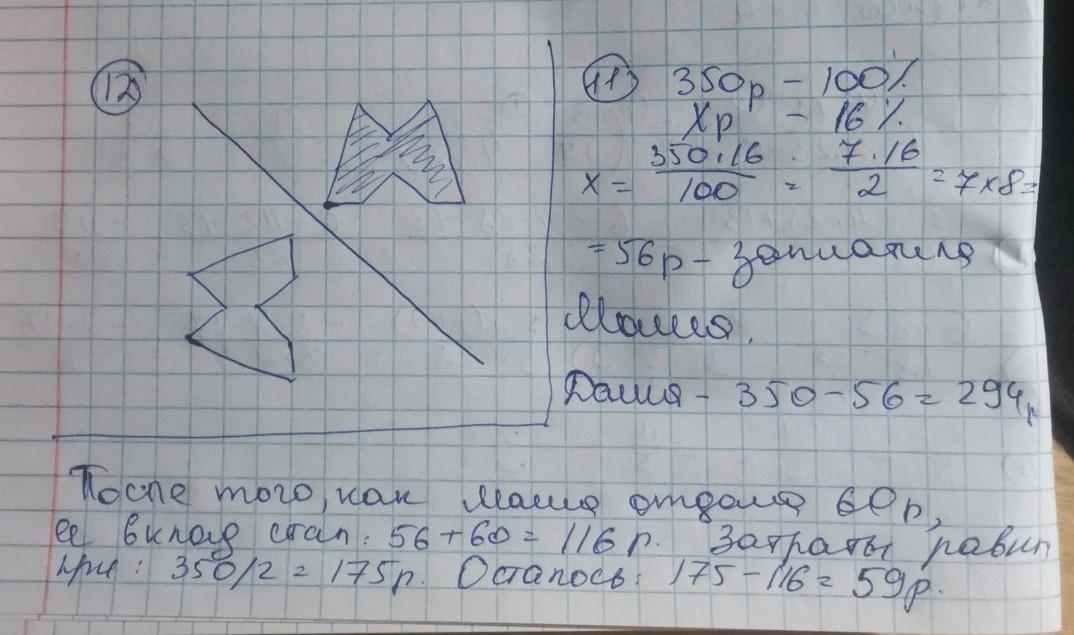 12
11 350р - 100%
Хр - 16%
х = 350.16/100 = 7.16/2 = 7х8=
=56р - заплатила
Маша.
Даша - 350-56=294р
После того, как Маша отдала 60р,
ее вклад стал: 56+60=116р. Затраты равны
при: 350/2=175р. Осталось: 175-116=59р.